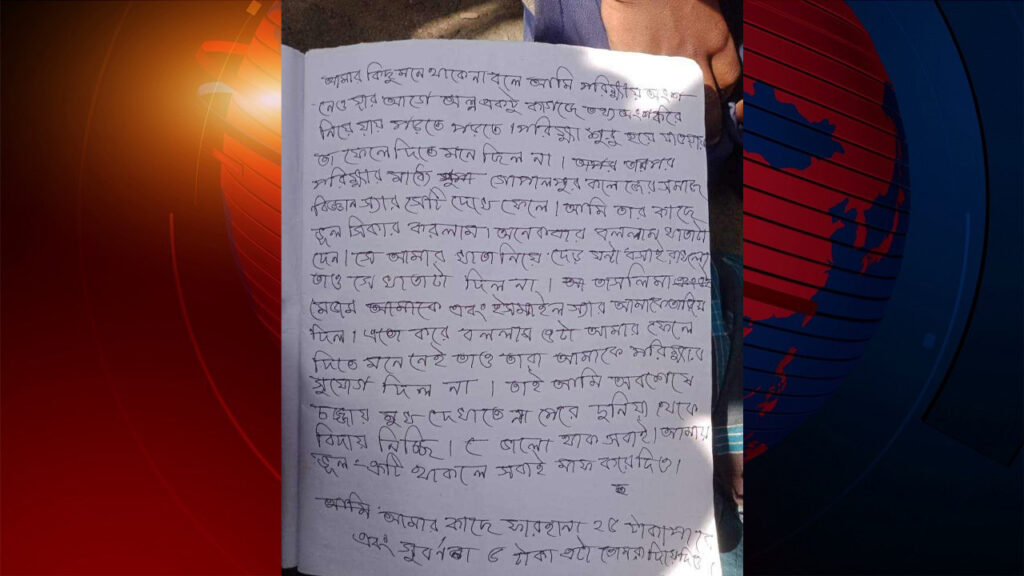 আমার কিছু মনে থাকেনা বলে আমি পরিক্ষায় অংশ
নেওয়ার আগে অল্প একটু কাগজে তথ্য অংশ করে
নিয়ে যায় পড়তে পড়তে। পরিক্ষা শুরু হয়ে যাওয়ায়
তা ফেলে দিতে মনে ছিল না। তারপর
পরিক্ষার মাঝে গোপালপুর কলেজের সমাজ
বিজ্ঞান স্যার সেটি দেখে ফেলে। আমি তার কাছে
ভুল স্বিকার করলাম। অনেকবার বললাম খাতাটা
দেন। সে আমার খাতা নিয়ে দেড় ঘন্টা বসাই রাখলো
তাও সে খাতাটা দিল না। তাসলিমা
মেডাম এবং ইসমাইল স্যার আমাকে তাড়িয়ে
দিল। এতো করে বললাম ওটা আমার ফেলে
দিতে মনে নেই তাও তারা আমাকে পরিক্ষার
সুযোগ দিল না। তাই আমি অবশেষে
লজ্জায় মুখ দেখাতে না পেরে দুনিয়া থেকে
বিদায় নিচ্ছি। ভালো থাক সবাই। আমার
ভুল-ত্রুটি থাকলে সবাই মাফ করে দিও।
আমি আমার কাছে ফারহানা ২৫ টাকা
এবং সুবর্না ৫ টাকা এটা তোমরা দিয়ে দিও।